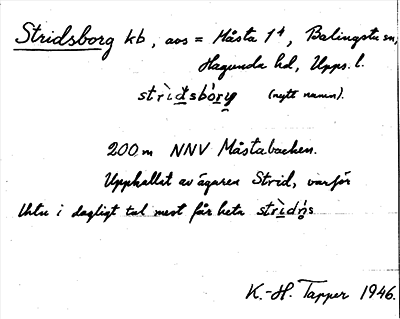 Stridsborg kb, avs = Måsta 1⁴, Balingsta sn,
Hagunda hd, Upps. l.
strìdsbórj (nytt namn).
200 m NNV Måstabacken.
Uppkallat av ägaren Strid, varför
i dagligt tal mest får heta strìdns
K.-H. Tapper 1946.